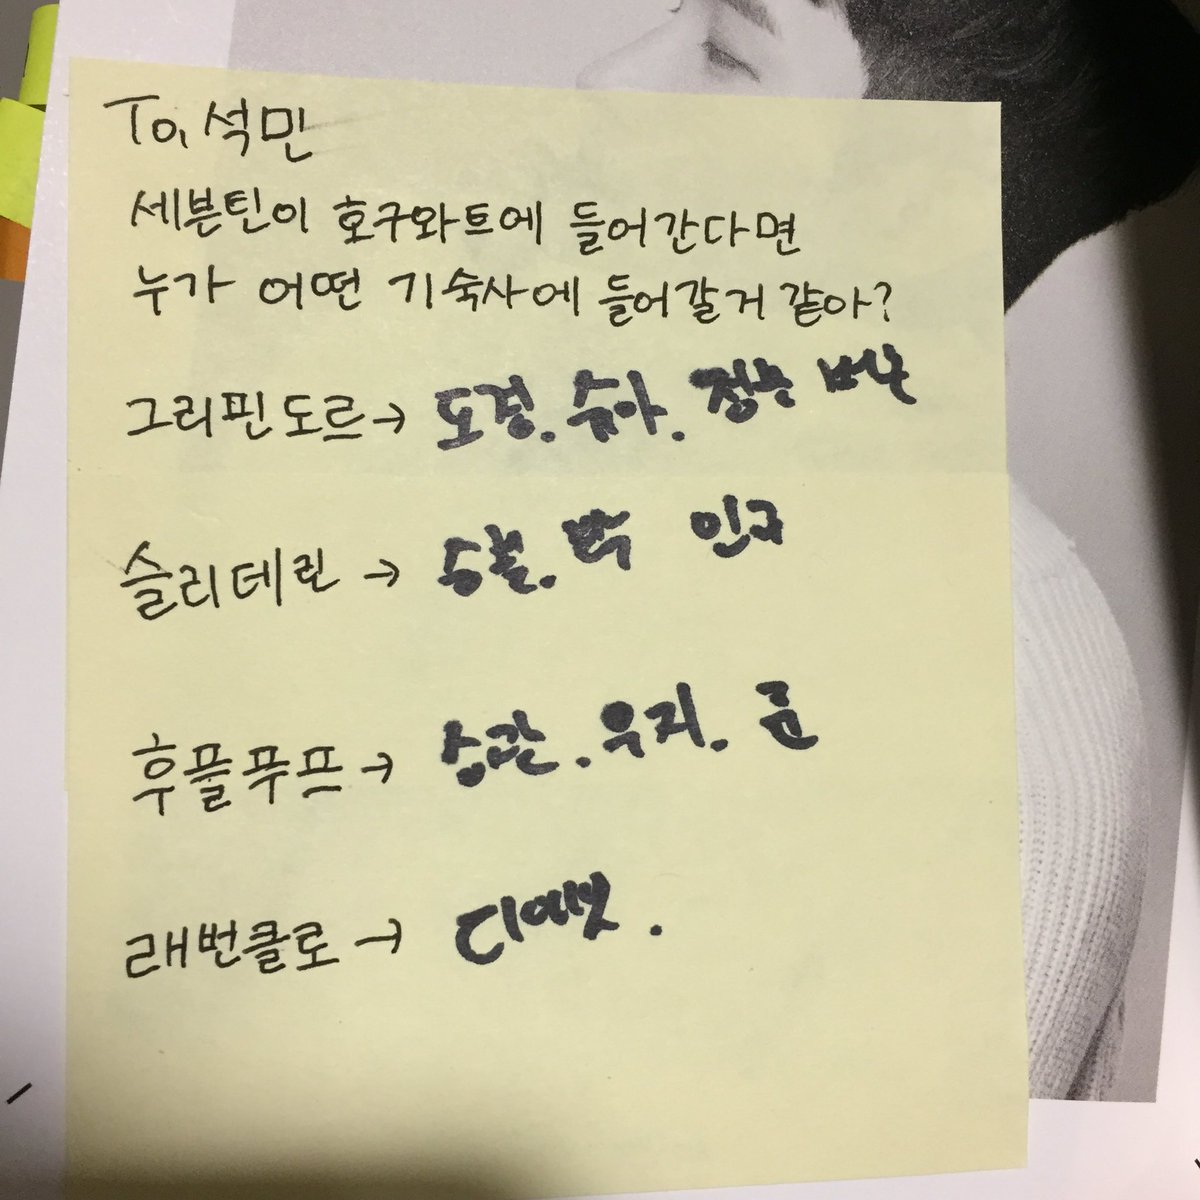 To, 석민
세븐틴이 호구와트에 들어간다면
누가 어떤 기숙사에 들어갈거 같아?
그리핀도르→ 도겸. 슈아. 정한 버논
슬리데린→ 승철. 민구
후플푸프→ 승관. 우지. 준
래번클로→ 디에잇.